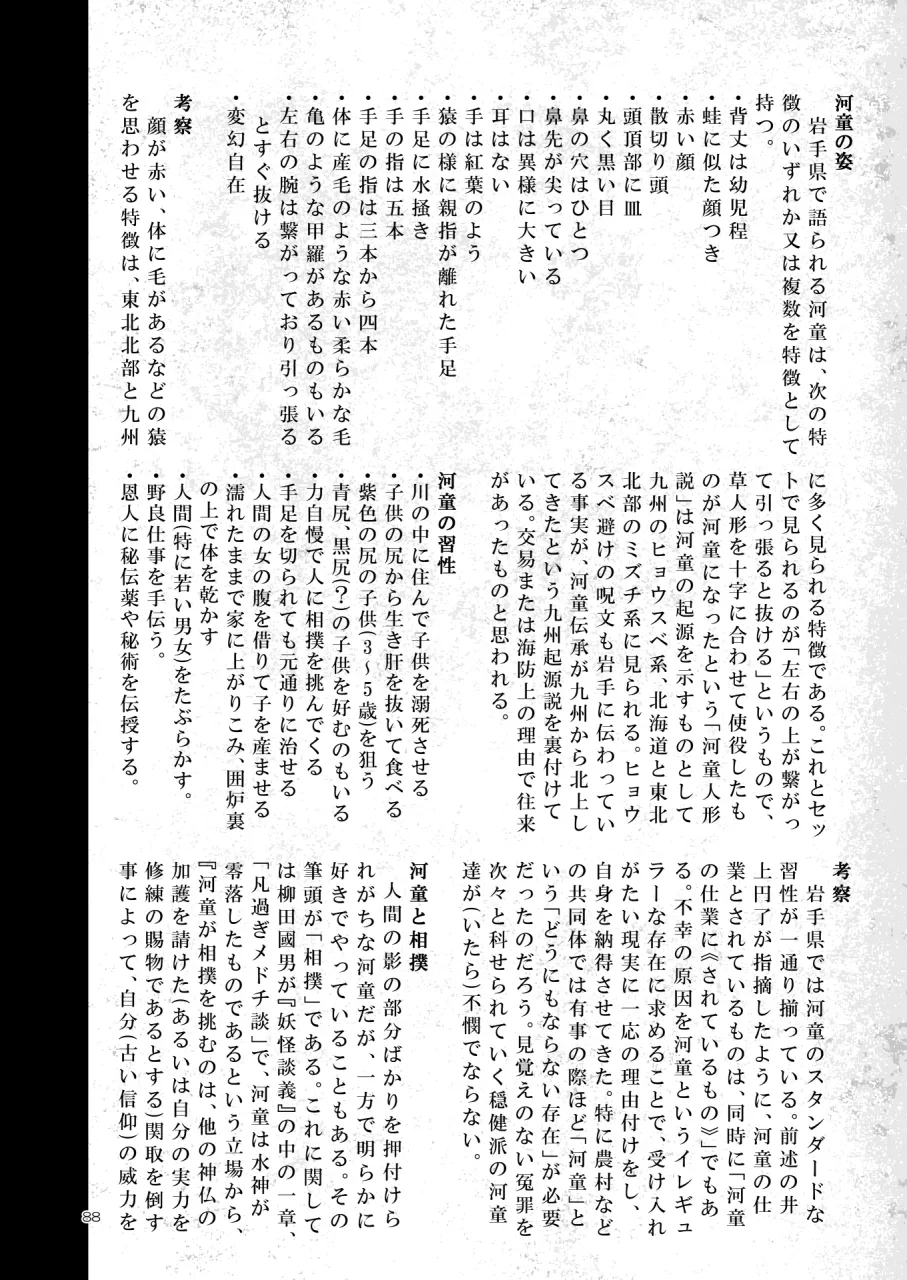 河童の姿
岩手県で語られる河童は、次の特
徴のいずれか又は複数を特徴として
持つ。
・背丈は幼児程
・蛙に似た顔つき
・赤い顔
・散切り頭
・頭頂部に皿
・丸く黒い目
・鼻の穴はひとつ
・鼻先が尖っている
・口は異様に大きい
・耳はない
・手は紅葉のよう
・猿の様に親指が離れた手足
・手足に水掻き
・手の指は五本
・手足の指は三本から四本
・体に産毛のような赤い柔らかな毛
・亀のような甲羅があるものもいる
・左右の腕は繋がっており引っ張る
とすぐ抜ける
・変幻自在
考察
顔が赤い、体に毛があるなどの猿
を思わせる特徴は、東北北部と九州
に多く見られる特徴である。これとセッ
トで見られるのが「左右の上が繋がっ
て引っ張ると抜ける」というもので、
草人形を十字に合わせて使役したも
のが河童になったという「河童人形
説」は河童の起源を示すものとして
九州のヒョウスベ系、北海道と東北
北部のミズチ系に見られる。ヒョウ
スベ避けの呪文も岩手に伝わってい
る事実が、河童伝承が九州から北上し
てきたという九州起源説を裏付けて
いる。交易または海防上の理由で往来
があったものと思われる。
河童の習性
・川の中に住んで子供を溺死させる
・子供の尻から生き肝を抜いて食べる
・紫色の尻の子供(3〜5歳)を狙う
・青尻、黒尻(?)の子供を好むのもいる
・力自慢で人に相撲を挑んでくる
・手足を切られても元通りに治せる
・人間の女の腹を借りて子を産ませる
・濡れたままで家に上がりこみ、囲炉裏
の上で体を乾かす
・人間(特に若い男女)をたぶらかす。
・野良仕事を手伝う。
・恩人に秘伝薬や秘術を伝授する。
考察
岩手県では河童のスタンダードな
習性が一通り揃っている。前述の井
上円了が指摘したように、河童の仕
業とされているものは、同時に「河童
の仕業に《されているもの》」でもあ
る。不幸の原因を河童というイレギュ
ラーな存在に求めることで、受け入れ
がたい現実に一応の理由付けをし、
自身を納得させてきた。特に農村など
の共同体では有事の際ほど「河童」と
いう「どうにもならない存在」が必要
だったのだろう。見覚えのない冤罪を
次々と科せられていく穏健派の河童
達が(いたら)不憫でならない。
河童と相撲
人間の影の部分ばかりを押付けら
れがちな河童だが、一方で明らかに
好きでやっていることもある。その
筆頭が「相撲」である。これに関して
は柳田國男が『妖怪談義』の中の一章、
「凡過ぎメドチ談」で、河童は水神が
零落したものであるという立場から、
『河童が相撲を挑むのは、他の神仏の
加護を請けた(あるいは自分の実力を
修練の賜物であるとする)関取を倒す
事によって、自分(古い信仰)の威力を
88